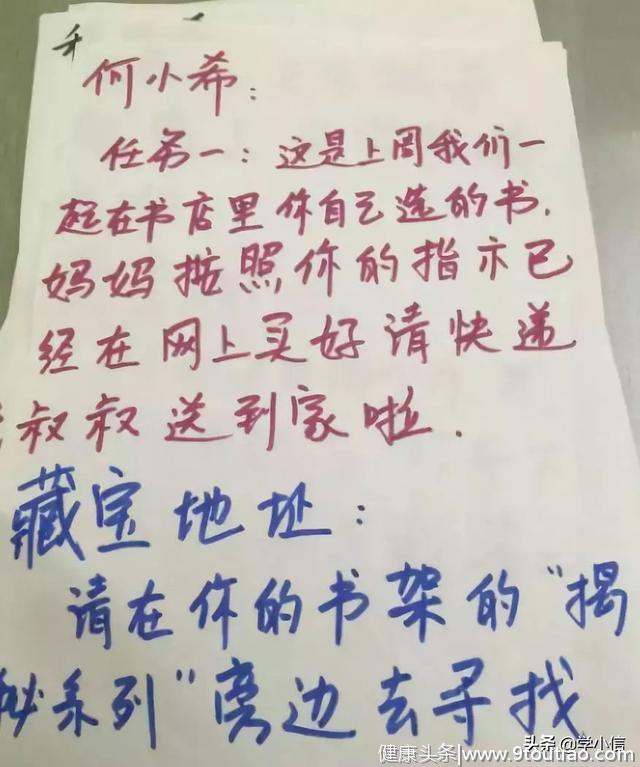 何小希：
任务一：这是上周我们一
起在书店里你自己选的书.
妈妈按照你的指示已
经在网上买好请快递
叔叔送到家啦.
藏宝地址：
请在你的书架的“揭
秘系列”旁边去寻找
头条@学小信
健康头条|www.9toutiao.com